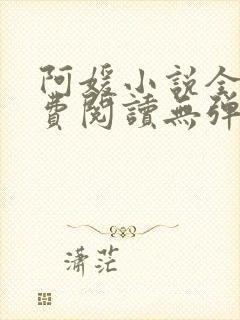 阿媛小说全
費閱讀無彈
潇茫